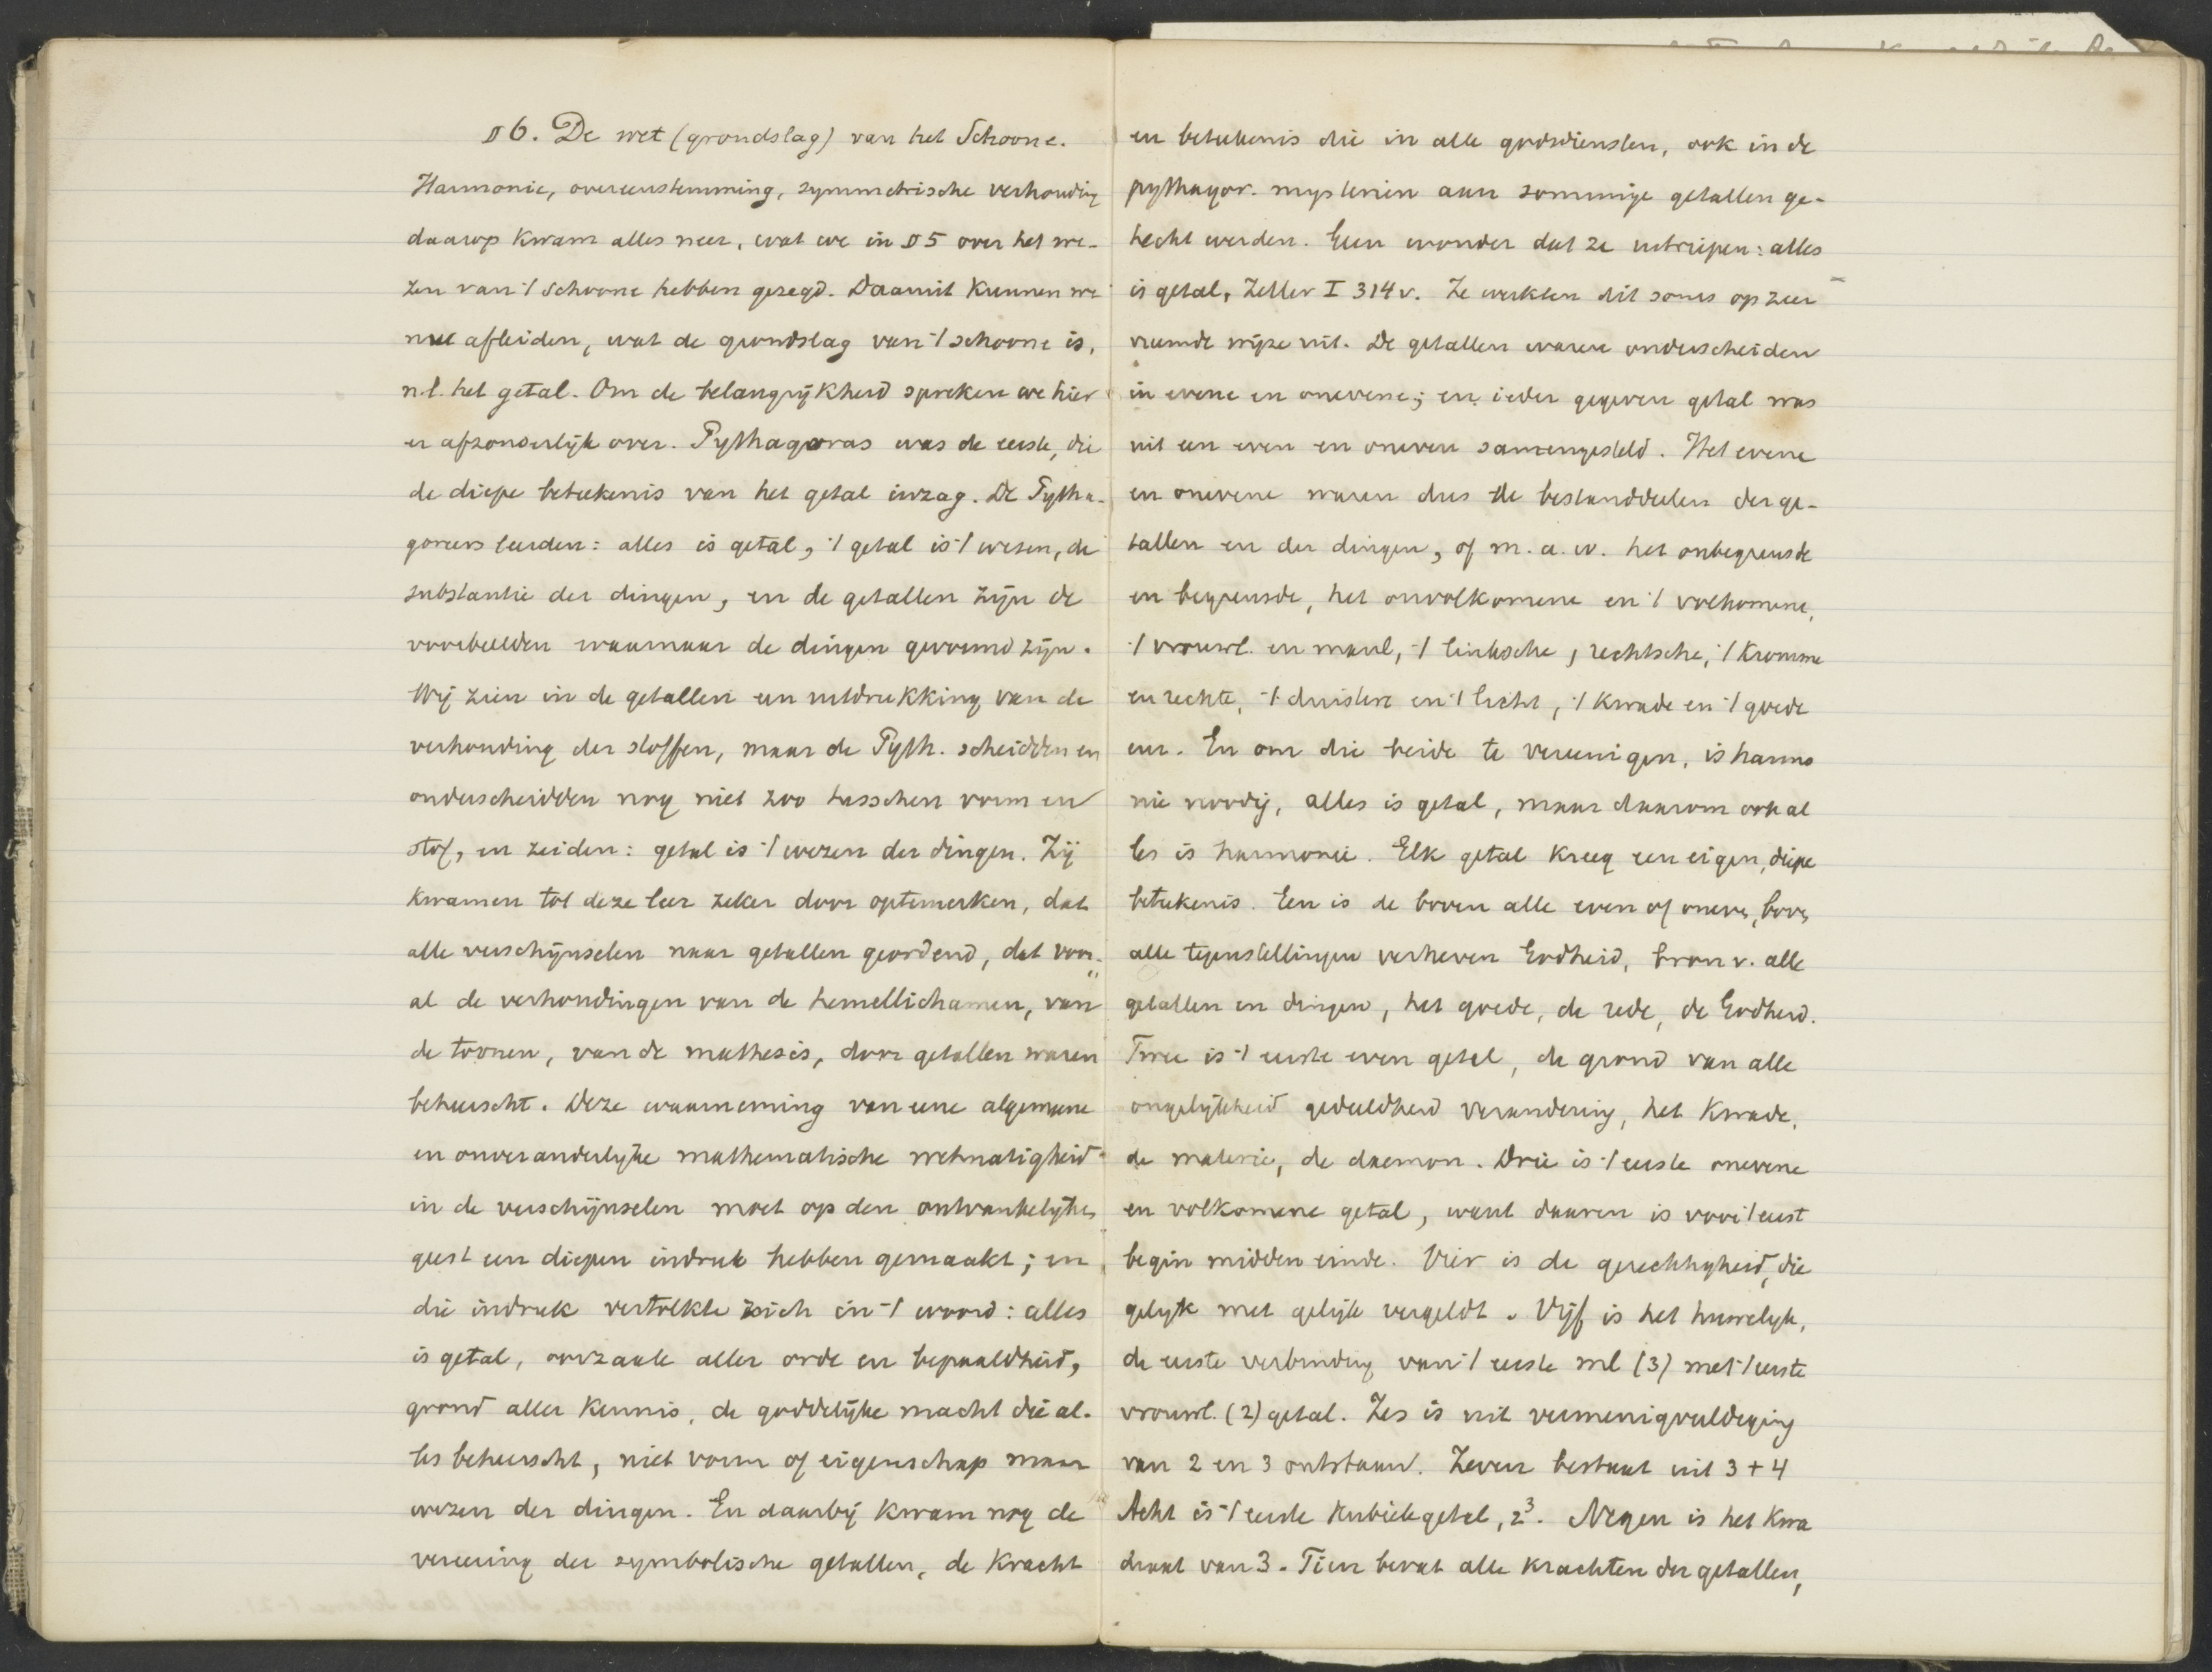 § 6. De wet (grondslag) van het Schoone.
Harmonie, overeenstemming, symmetrische verhouding
daarop kwam alles neer, wat we in § 5 over het we-
zen van 't schoone hebben gezegd. Daaruit kunnen we
nu afleiden, wat de grondslag van 't schoone is,
n.l. het getal. Om de belangrijkheid spreken we hier
er afzonderlijk over. Pythagoras was de eerste, die
de diepe beteekenis van het getal inzag. De Pytha-
goreers leerden: alles is getal, 't getal is 't wezen, de
substantie der dingen, en de getallen zijn de
voorbeelden waarnaar de dingen gevormd zijn.
Wij zien in de getallen een uitdrukking van de
verhouding der stoffen, maar de Pyth. scheidden en
onderscheidden nog niet zoo tusschen vorm en
stof, en zeiden: getal is 't wezen der dingen. Zij
kwamen tot deze leer zeker door optemerken, dat
alle verschijnselen naar getallen geordend, dat voor-
al de verhoudingen van de hemellichamen, van
de toonen, van de mathesis, door getallen waren
beheerscht. Deze waarneming van eene algemeene
en onveranderlijke mathematische wetmatigheid
in de verschijnselen moet op den ontvankelijken
geest een diepen indruk hebben gemaakt; en
die indruk vertolkte zich in 't woord: alles
is getal, oorzaak aller orde en bepaaldheid,
grond aller kennis, de goddelijke macht die al-
les beheerscht, niet vorm of eigenschap maar
wezen der dingen. En daarbij kwam nog de
vereering der symbolische getallen, de kracht
en beteekenis die in alle godsdiensten, ook in de
pythagor. mysteriën aan sommige getallen ge-
hecht werden. Geen wonder dat ze uitriepen: alles
is getal, Zeller I 314 v. Ze werkten dit soms op zeer
vreemde wijze uit. De getallen waren onderscheiden
in evene en onevene; en ieder gegeven getal was
uit een even en oneven samengesteld. Het evene
en onevene waren dus de bestanddeelen der ge-
tallen en der dingen, of m.a.w. het onbegrensde
en begrensde, het onvolkomene en 't volkomene,
't vrouwl. en manl, 't linksche, rechtsche, 't kromme
en rechte, 't duistere en 't licht, 't kwade en 't goede
enz. En om die beide te vereenigen, is harmo
nie noodig, alles is getal, maar daarom ook al
les is harmonie. Elk getal kreeg een eigen, diepe
beteekenis. Een is de boven alle even of oneven, boven
alle tegenstellingen verheven Godheid, bron v. alle
getallen en dingen, het goede, de rede, de Godheid.
Twee is 't eerste even getal, de grond van alle
ongelijkheid gedeeldheid verandering, het kwade,
de materie, de daemon. Drie is 't eerste onevene
en volkomene getal, want daarin is voor 't eerst
begin midden einde. Vier is de gerechtigheid, die
gelijk met gelijk vergeldt. Vijf is het huwelijk,
de eerste verbinding van 't eerste ml (3) met 't eerste
vrouwl. (2) getal. Zes is uit vermenigvuldiging
van 2 en 3 ontstaan. Zeven bestaat uit 3 + 4
Acht is 't eerste kubiekgetal, 2³. Negen is het kwa
draat van 3. Tien bevat alle krachten der getallen,